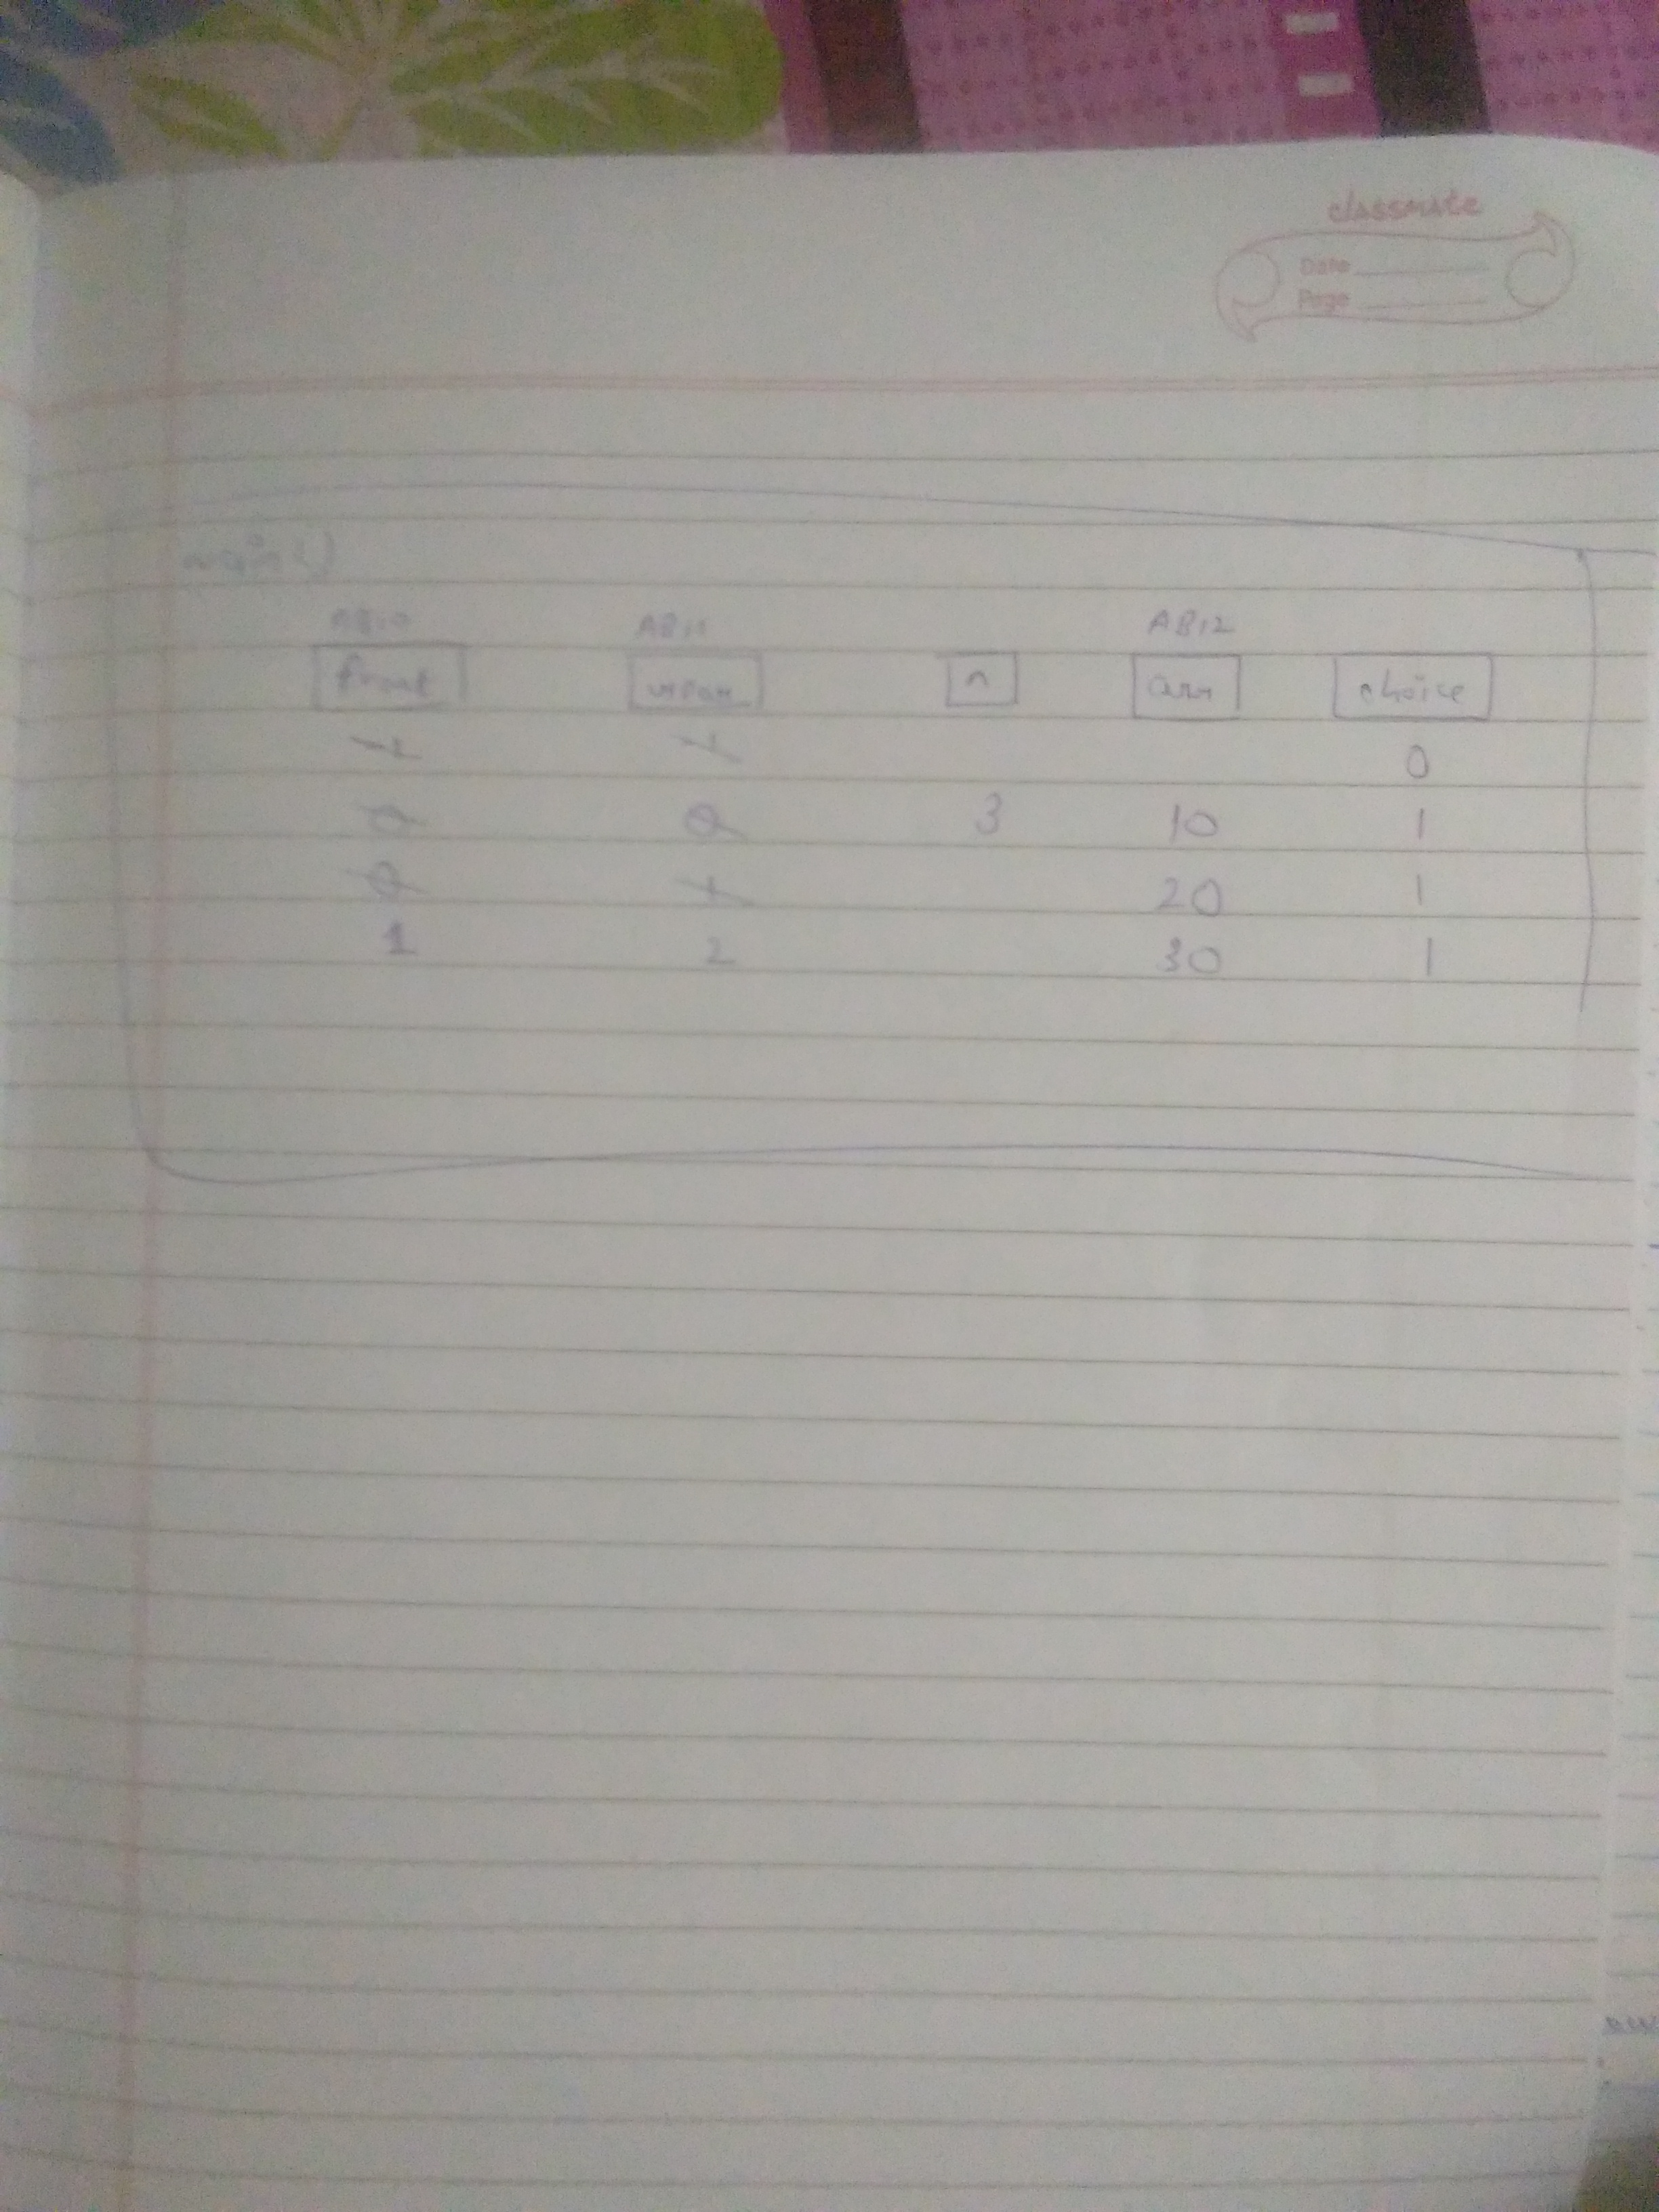 classmate
Date
Page
main()
AB10 AB11 AB12
front rear n arr choice
-1 -1 0
0 0 3 10 1
0 1 20 1
1 2 30 1